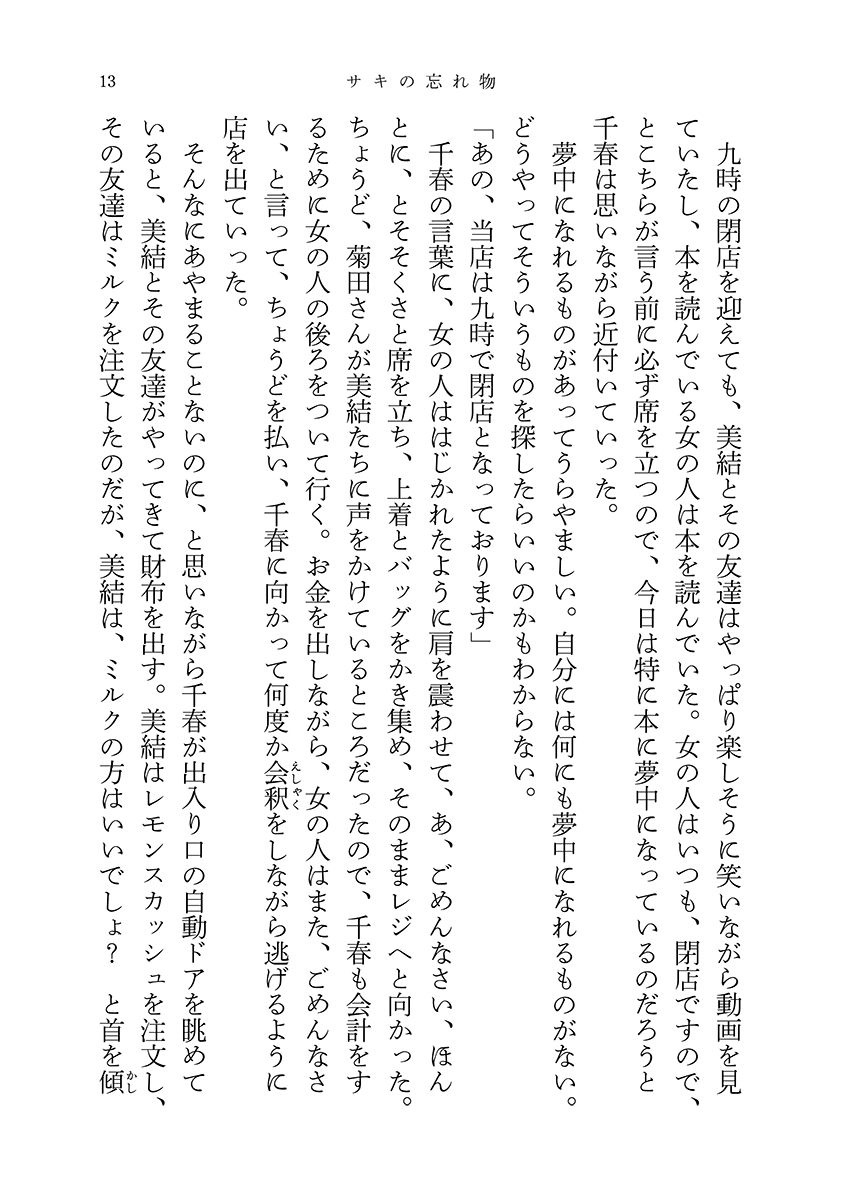 13
サキの忘れ物
　九時の閉店を迎えても、美結とその友達はやっぱり楽しそうに笑いながら動画を見
ていたし、本を読んでいる女の人は本を読んでいた。女の人はいつも、閉店ですので、
とこちらが言う前に必ず席を立つので、今日は特に本に夢中になっているのだろうと
千春は思いながら近付いていった。
　夢中になれるものがあってうらやましい。自分には何にも夢中になれるものがない。
どうやってそういうものを探したらいいのかもわからない。
「あの、当店は九時で閉店となっております」
　千春の言葉に、女の人ははじかれたように肩を震わせて、あ、ごめんなさい、ほん
とに、とそそくさと席を立ち、上着とバッグをかき集め、そのままレジへと向かった。
ちょうど、菊田さんが美結たちに声をかけているところだったので、千春も会計をす
るために女の人の後ろをついて行く。お金を出しながら、女の人はまた、ごめんなさ
い、と言って、ちょうどを払い、千春に向かって何度か会釈えしゃくをしながら逃げるように
店を出ていった。
　そんなにあやまることないのに、と思いながら千春が出入り口の自動ドアを眺めて
いると、美結とその友達がやってきて財布を出す。美結はレモンスカッシュを注文し、
その友達はミルクを注文したのだが、美結は、ミルクの方はいいでしょ？　と首を傾かし